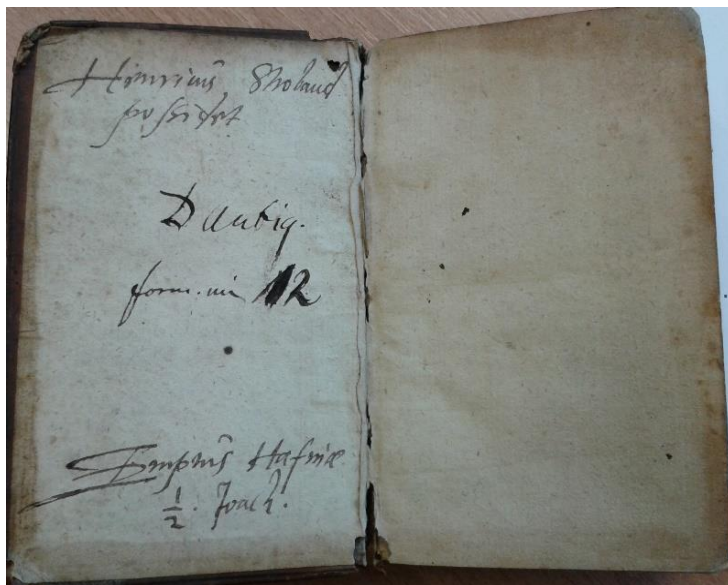 Hinricus
possidet
Daubig.
form. in 12
Emptus Hafniæ
1/2. Joach.